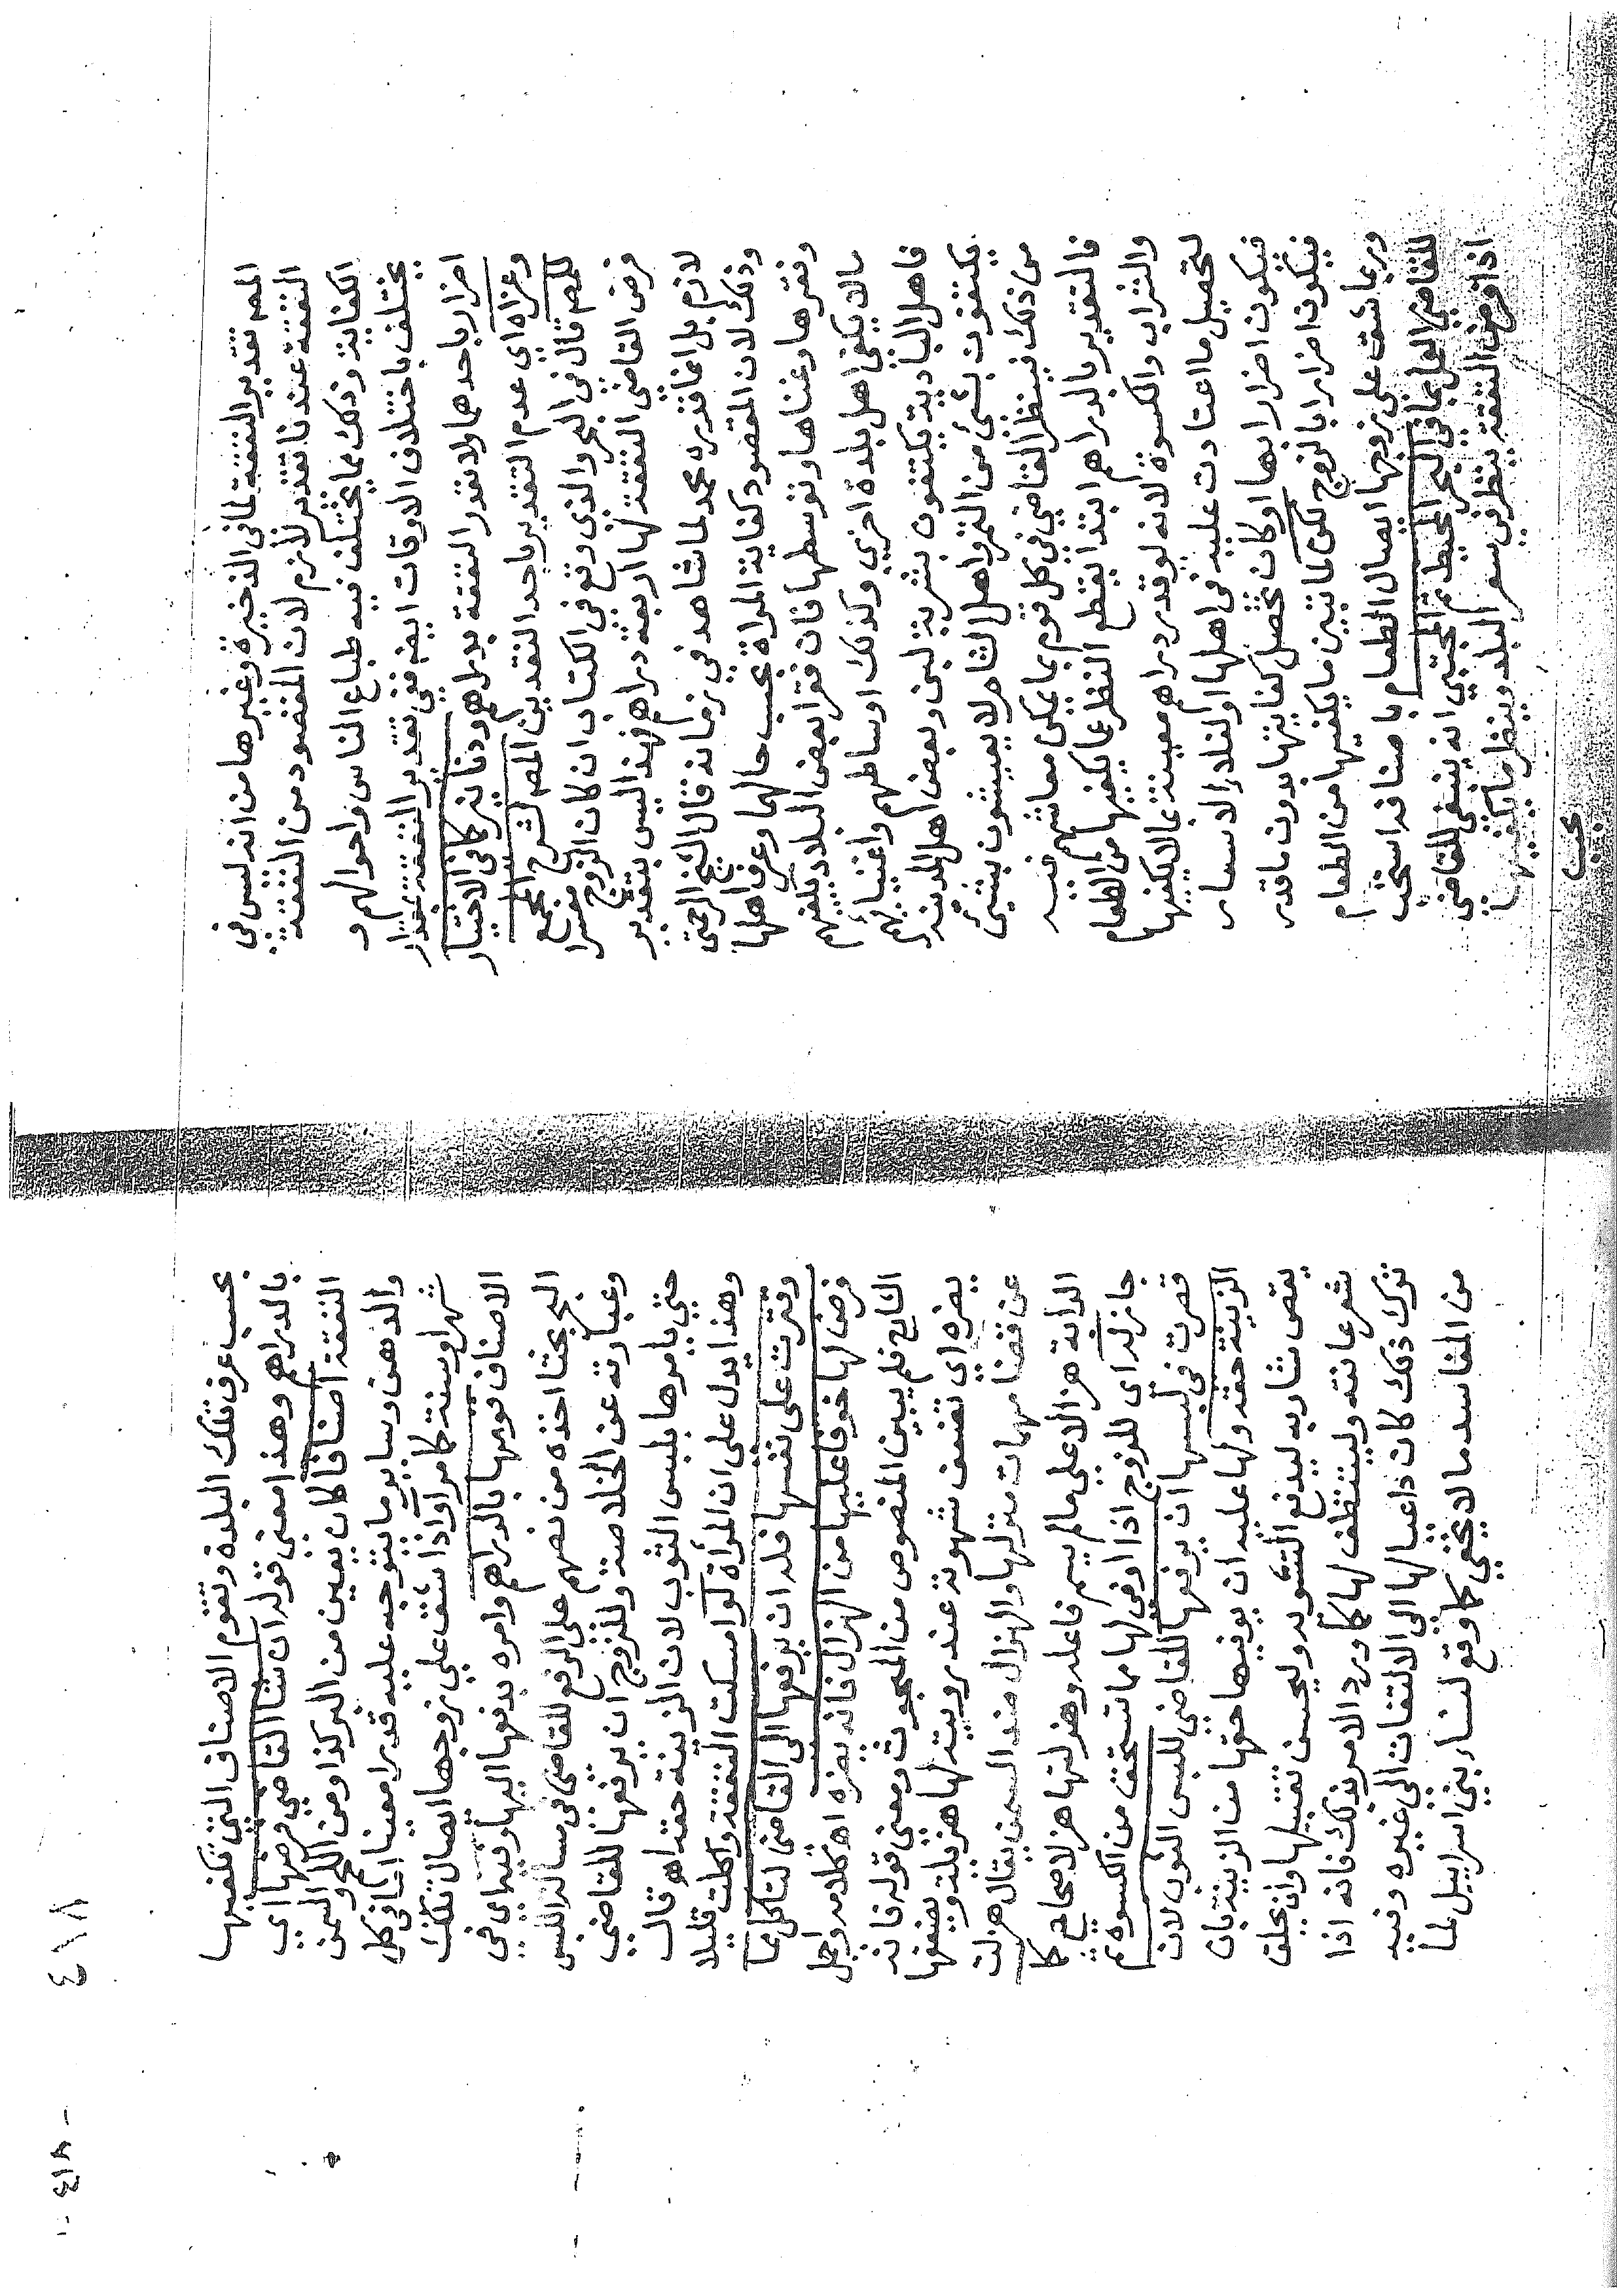 المص تقدير النفقة لما في الذخيرة وغيرها من انه ليس في
النفقة عندنا تقدير لازم لان المقصود من النفقة
الكفاية وذلك مما يختلف فيه طباع الناس واحوالهم و
يختلف باختلاف الاوقات ايضا ففي تقدير النفقة بمقدار
اضرار باحدهما ولا تقدر النفقة بدراهم ودنانير كما في الاختيار
وعزاه اي عدم التقدير باحد النقدين المص لشرح المجمع
للمص قال في البحر والذي وقع في الكتاب ان كان الزوج معسرا
فرض القاضي النفقة لها اربعة دراهم فهذا ليس بتقدير
لازم بل انما قدره محمد لما شاهد في زمانه قال الشيخ الرحمتي
وذلك لان المقصود كفاية المراة بحسب حالهما وعرف اهلها
وفقرها وغناها وتوسطها فان فقرا بعض البلاد يكفيهم
ما لا يكفي اهل بلدة اخري وكذلك اوساطهم واغنيائهم
فاهل البادية يكتفون بشربة لبن وبعض اهل المدينة
يكتفون بشئ من التمر واهل الشام لا يعيشون بشئ
من ذلك فينظر القاضي في كل قوم بما يمكن معاشهم فيه
فالتقدير بالدراهم ابتدا يقطع النظر عما يكفيها من الطعام
والشراب والكسوة لانه لو قدر دراهم معينة بما لا يكفيها
لتحصيل ما اعتادت عليه في اهلها او لغلاء الاسعار
فيكون اضرارا بها او كان تحصل كفايتها بدون ما قدر
فيكون اضرارا بالزوج لكن لما تبين ما يكفيها من الطعام
وربما شق علي زوجها ايصال الطعام باصنافه استحب
للقاضي العمل بما في البحر المحيط ثم المجتبي انه ينبغي للقاضي
اذا فرض النفقة ينظر في سعر البلد وينظر ما يكفيها
بحسب
بحسب عرف تلك البلدة وتقوم الاصناف التي تكفيها
بالدراهم وهذا معني قوله ان شا القاضي فرضها اي
النفقة اصنافا كان يعين من البر كذا ومن اللحم والسمن
والدهن وساير ما يتوجه عليه قدرا معينا اما في كل
شهر او سنة كما مر او اذا شق علي زوجها ايصال تلك
الاصناف قومها بالدراهم وامره بدفعها اليها وفيه اي في
البحر بحثا اخذه من نصهم علي الرفع للقاضي في مسالة اللبس
وعبارته عن الخلاصة وللزوج ان يرفعها للقاضي
حتي يامرها بلبس الثوب لان الزينة حقه اه قال
وهذا يدل علي ان المرأة لو امسكت النفقة واكلت قليلا
وقترت علي نفسها فله ان يرفعها الي القاضي لتاكل مما
فرض لها خوفا عليها من الهزال فانه يضره اه كلامه واجل
الشارح فلم يبين المنصوص من المبحوث ومعني قوله فانه
يضره اي تضعف شهوته عند رويته لها هزيلة ويضعفها
عن قضا مهمات منزلها والهزال ضد السمن يقال هزلت
الدابة هزالا علي مالم يسم فاعله وهزلتها هزلا صحاح كما
جاز له اي للزوج اذا اوفي لها ما تستحق من الكسوة ثم
قصرت في لبسها ان يرفعها للقاضي للبس الثوب لان
الزينة حقه ولها عليه ان يوفيها حقها من الزينة بان
يقص شاربه ليدفع التشويه وليحسن تقبيلها وان يحلق
شعر عانته وليتنظف لها كما ورد الامر بذلك فانه اذا
ترك ذلك كان داعيا لها الي الالتفات الي غيره وفيه
من المفاسد ما لا يخفي كما وقع لنساء بني اسراييل لما
٤١٨
- ٤١٨ -